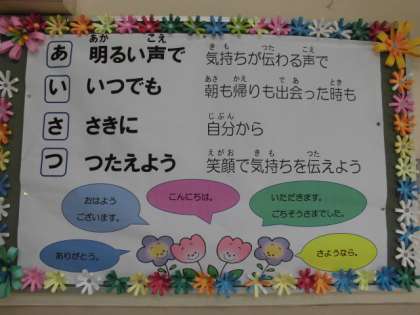 あ 明るい声で 気持ちが伝わる声で
い いつでも 朝も帰りも出会った時も
さ さきに 自分から
つ つたえよう 笑顔で気持ちを伝えよう
おはよう
ございます。
こんにちは。
いただきます。
ごちそうさまでした。
ありがとう。
さようなら。